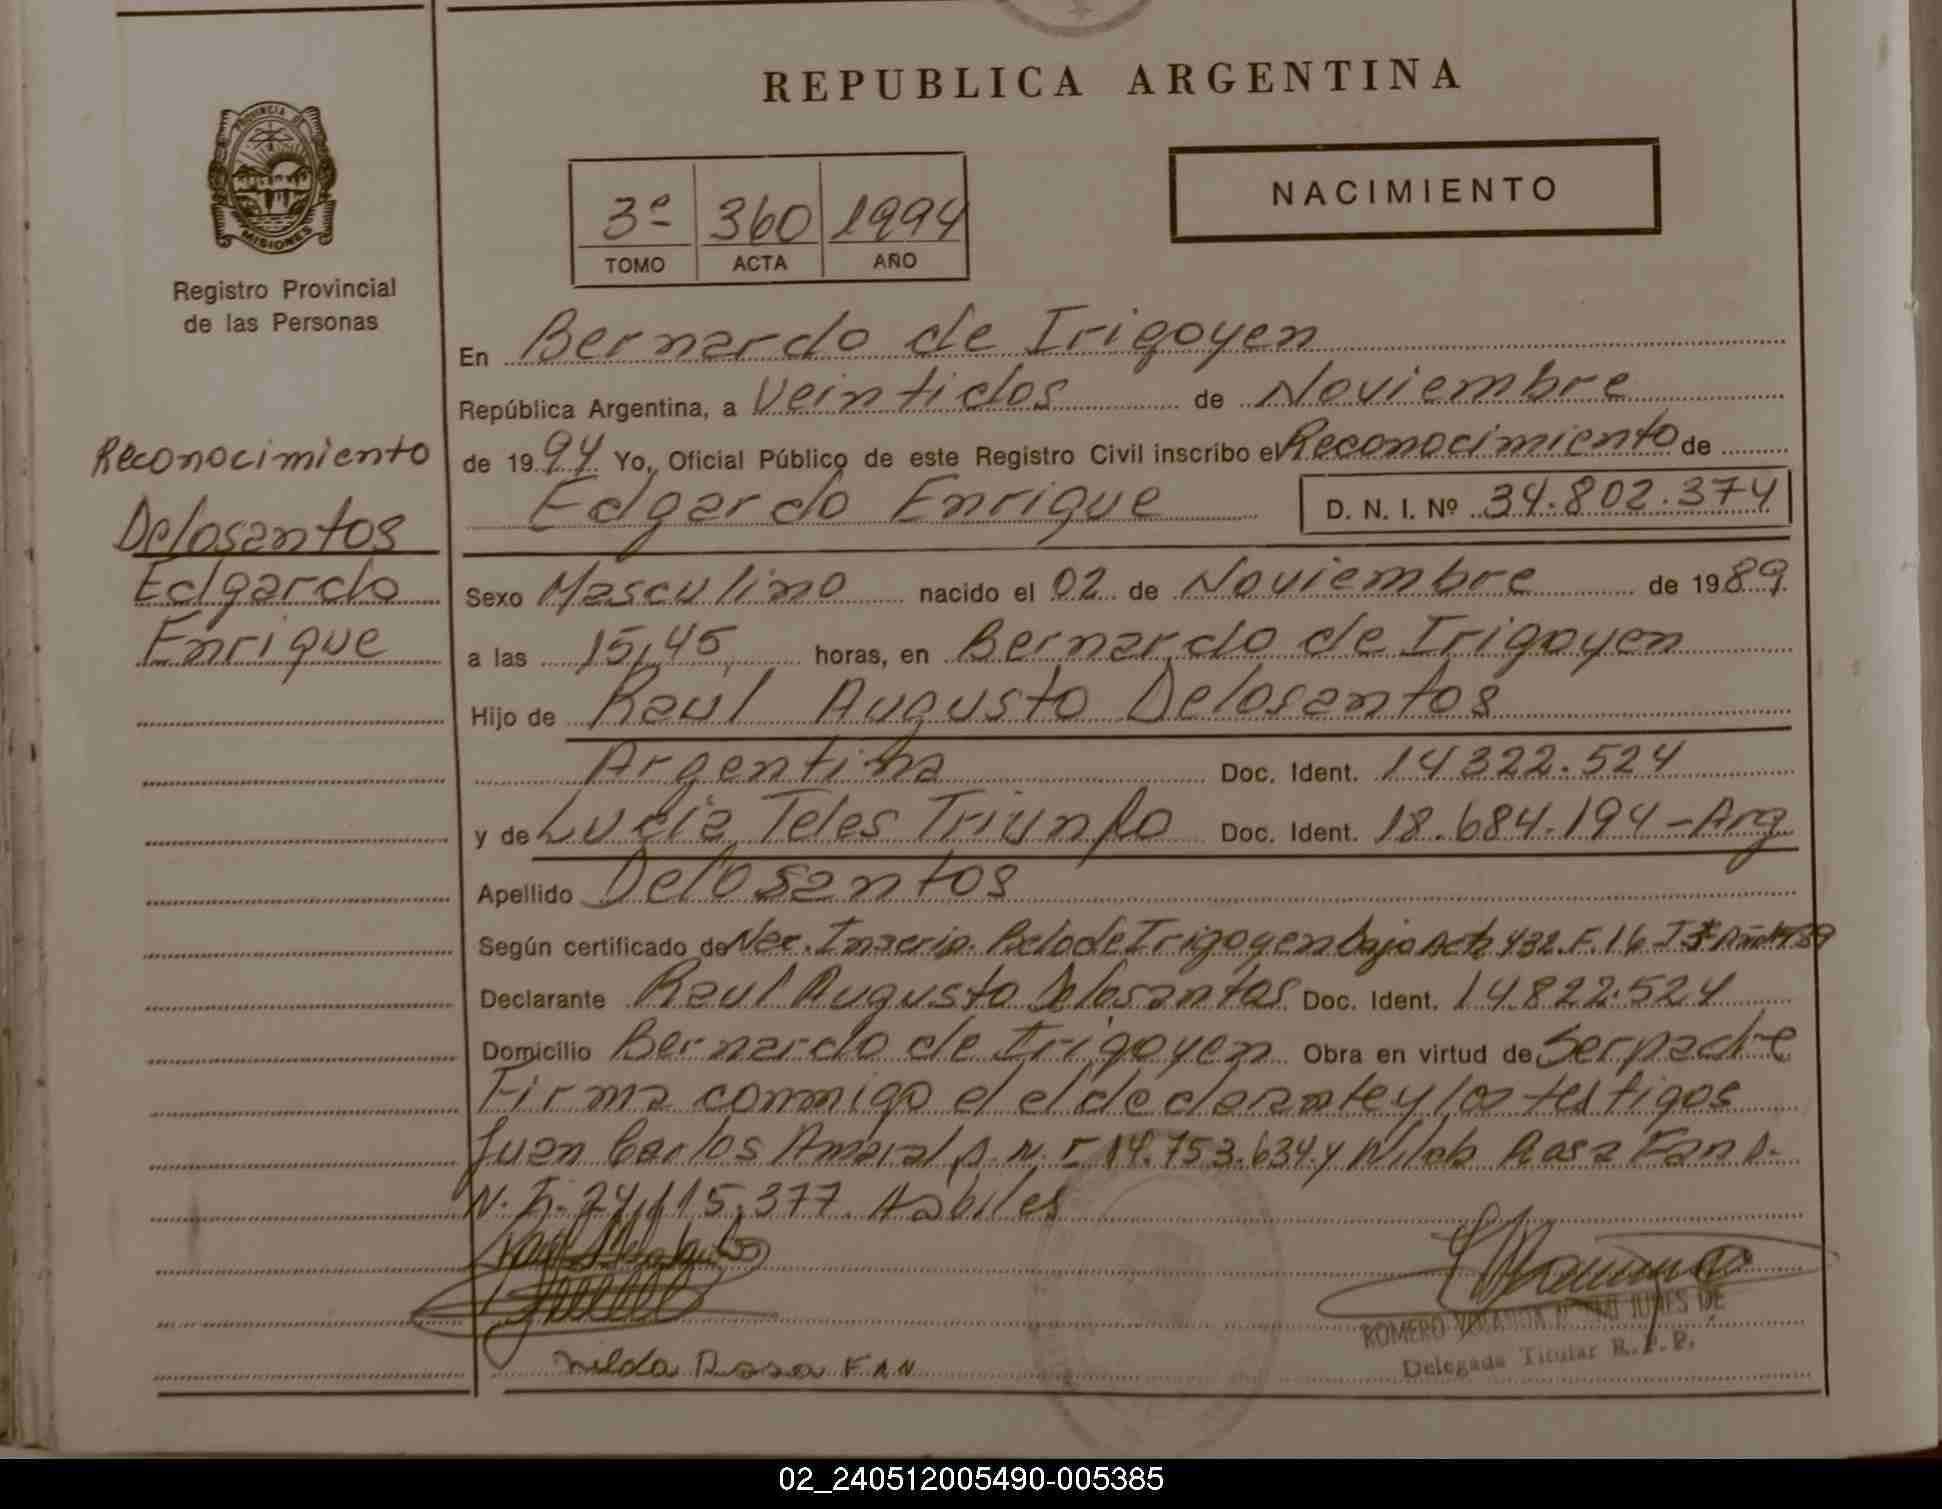 REPUBLICA ARGENTINA
PROVINCIA DE
MISIONES
Registro Provincial
de las Personas
3º 360 1994
TOMO ACTA AÑO
NACIMIENTO
Reconocimiento
Delosantos
Edgardo
Enrique
En Bernardo de Irigoyen
República Argentina, a Veintidos de Noviembre
de 1994 Yo, Oficial Público de este Registro Civil inscribo el Reconocimiento de
Edgardo Enrique D. N. I. Nº 34.802.374
Sexo Masculino nacido el 02 de Noviembre de 1989
a las 15,45 horas, en Bernardo de Irigoyen
Hijo de Raul Augusto Delosantos
Argentina Doc. Ident. 14322.524
y de Lucia Teles Triunfo Doc. Ident. 18.684.194-Arg
Apellido Delosantos
Según certificado de Nac. Inscrip. Bdo de Irigoyen bajo Acta 432. F. 16
Declarante Raul Augusto Delosantos Doc. Ident. 14822.524
Domicilio Bernardo de Irigoyen Obra en virtud de Ser padre
Firma conmigo el el declarante y los testigos
Juan Carlos Amaral D. N. I 14.753.634 y Nilda Rosa Fan D.
N. I. 24.115.377. Habiles
Nilda Rosa FAN
ROMERO DE
Delegada Titular R.P.P.
02_240512005490-005385